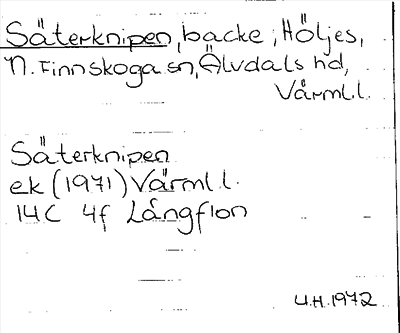 Säterknipen, backe, Höljes,
N. Finnskoga sn, Älvdals hd,
Värml.l.
Säterknipen
ek (1971) Värml.l.
14C 4f Långflon
U.H. 1972